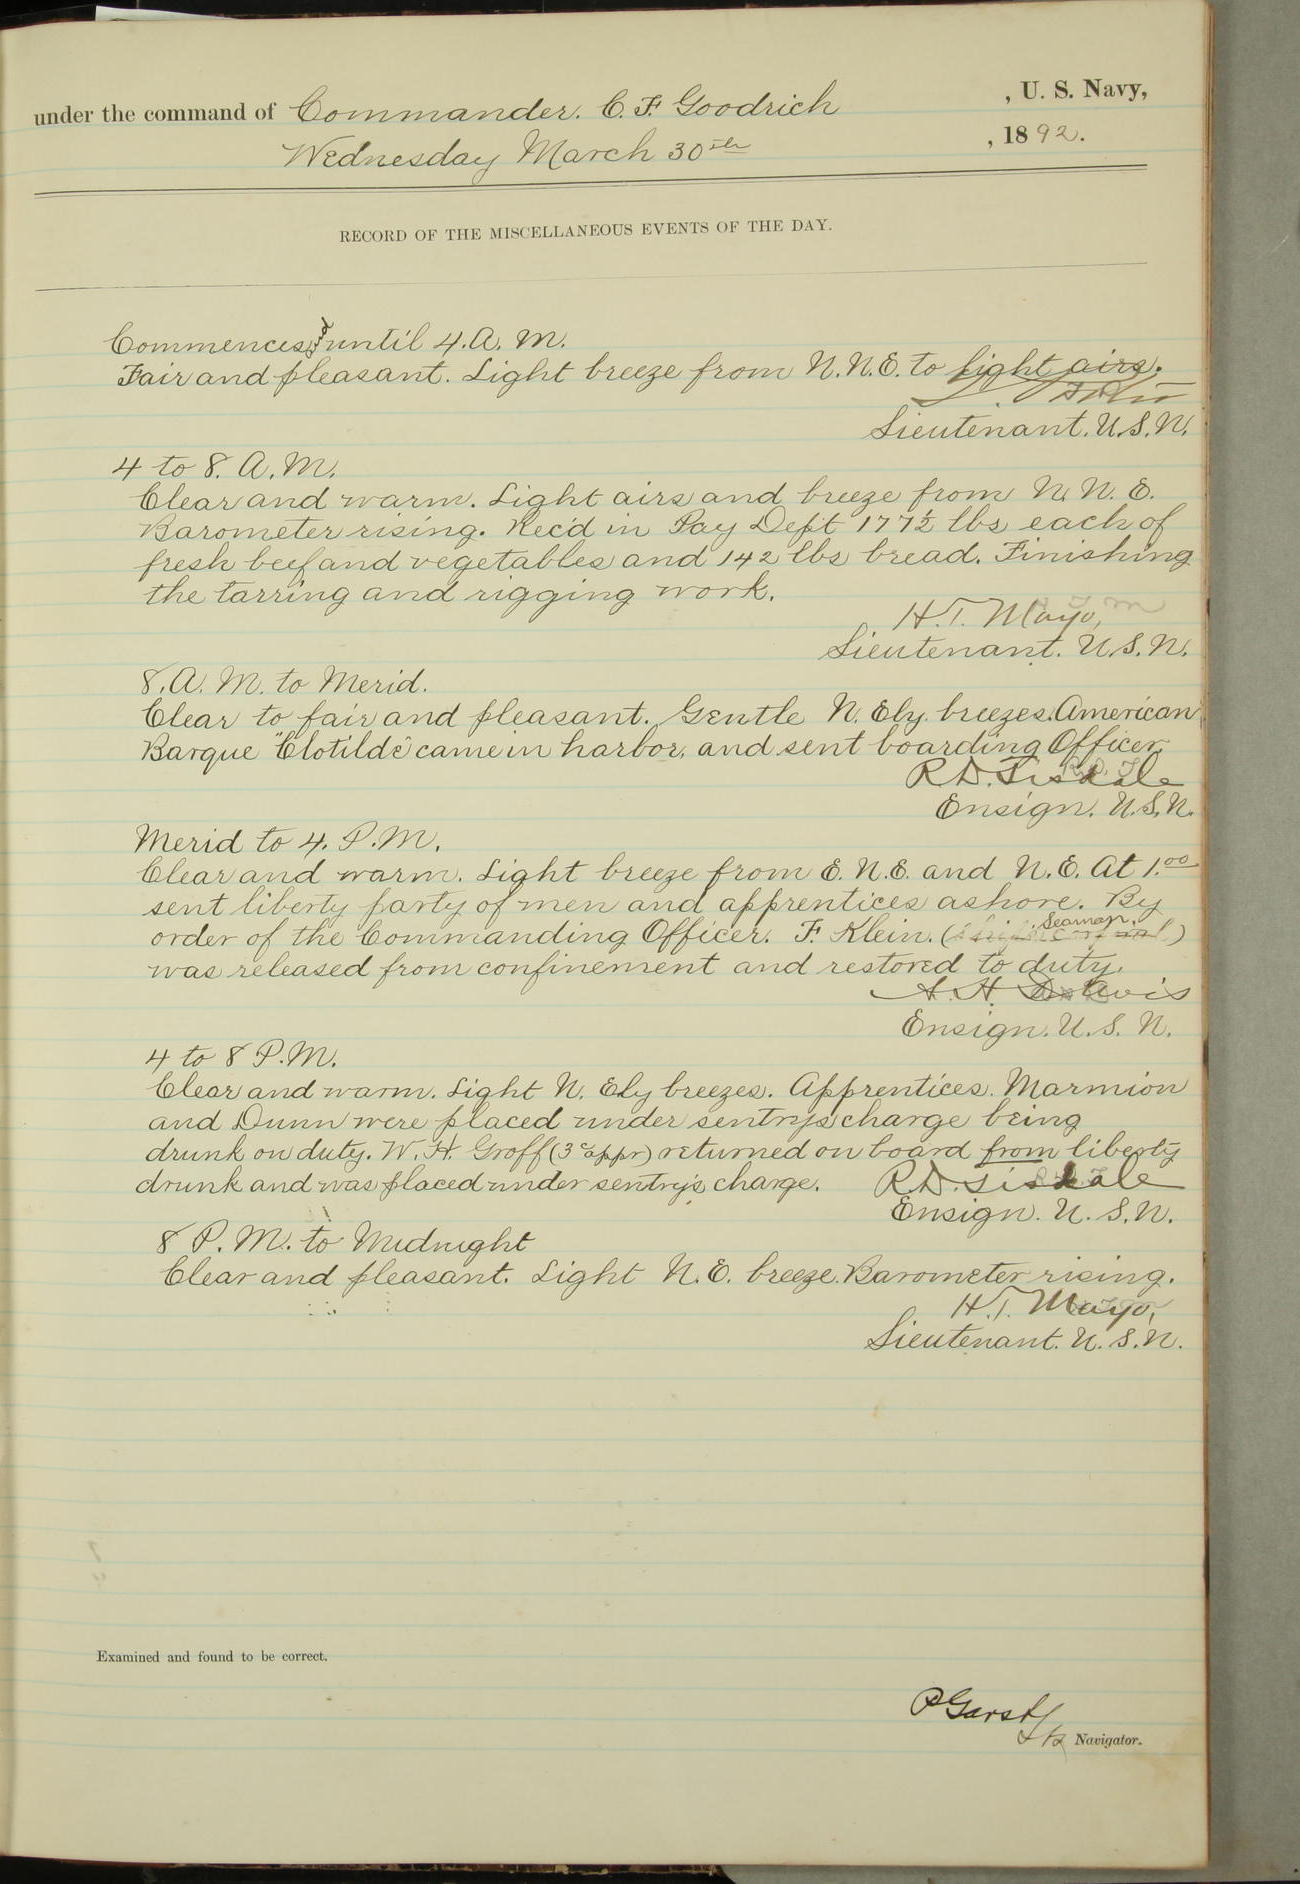 under the command of Commander. C. F. Goodrich , U. S. Navy,
Wednesday March 30th , 1892.
RECORD OF THE MISCELLANEOUS EVENTS OF THE DAY.
Commences & until 4. A. M.
Fair and pleasant. Light breeze from N. N. E. to light airs.
Lieutenant. U. S. N.
4 to 8. A. M.
Clear and warm. Light airs and breeze from N. N. E.
Barometer rising. Rec'd in Pay Dept 177½ lbs each of
fresh beef and vegetables and 142 lbs bread. Finishing
the tarring and rigging work.
H. T. Mayo,
Lieutenant. U. S. N.
8. A. M. to Merid.
Clear to fair and pleasant. Gentle N. Ely. breezes. American
Barque "Clotilde" came in harbor, and sent boarding Officer.
R D. Tisdale
Ensign. U. S. N.
Merid to 4. P. M.
Clear and warm. Light breeze from E. N. E. and N. E. At 1.00
sent liberty party of men and apprentices ashore. By
order of the Commanding Officer. F. Klein. (Seaman.)
was released from confinement and restored to duty.
A. H. Davis
Ensign. U. S. N.
4 to 8 P. M.
Clear and warm. Light N. Ely breezes. Apprentices. Marmion
and Dunn were placed under sentrys charge being
drunk on duty. W. H. Groff (3c appr) returned on board from liberty
drunk and was placed under sentry's charge. R D. Tisdale
Ensign. U. S. N.
8 P. M. to Midnight
Clear and pleasant. Light N. E. breeze. Barometer rising.
H. T. Mayo,
Lieutenant. U. S. N.
Examined and found to be correct.
P Garst
Lt Navigator.